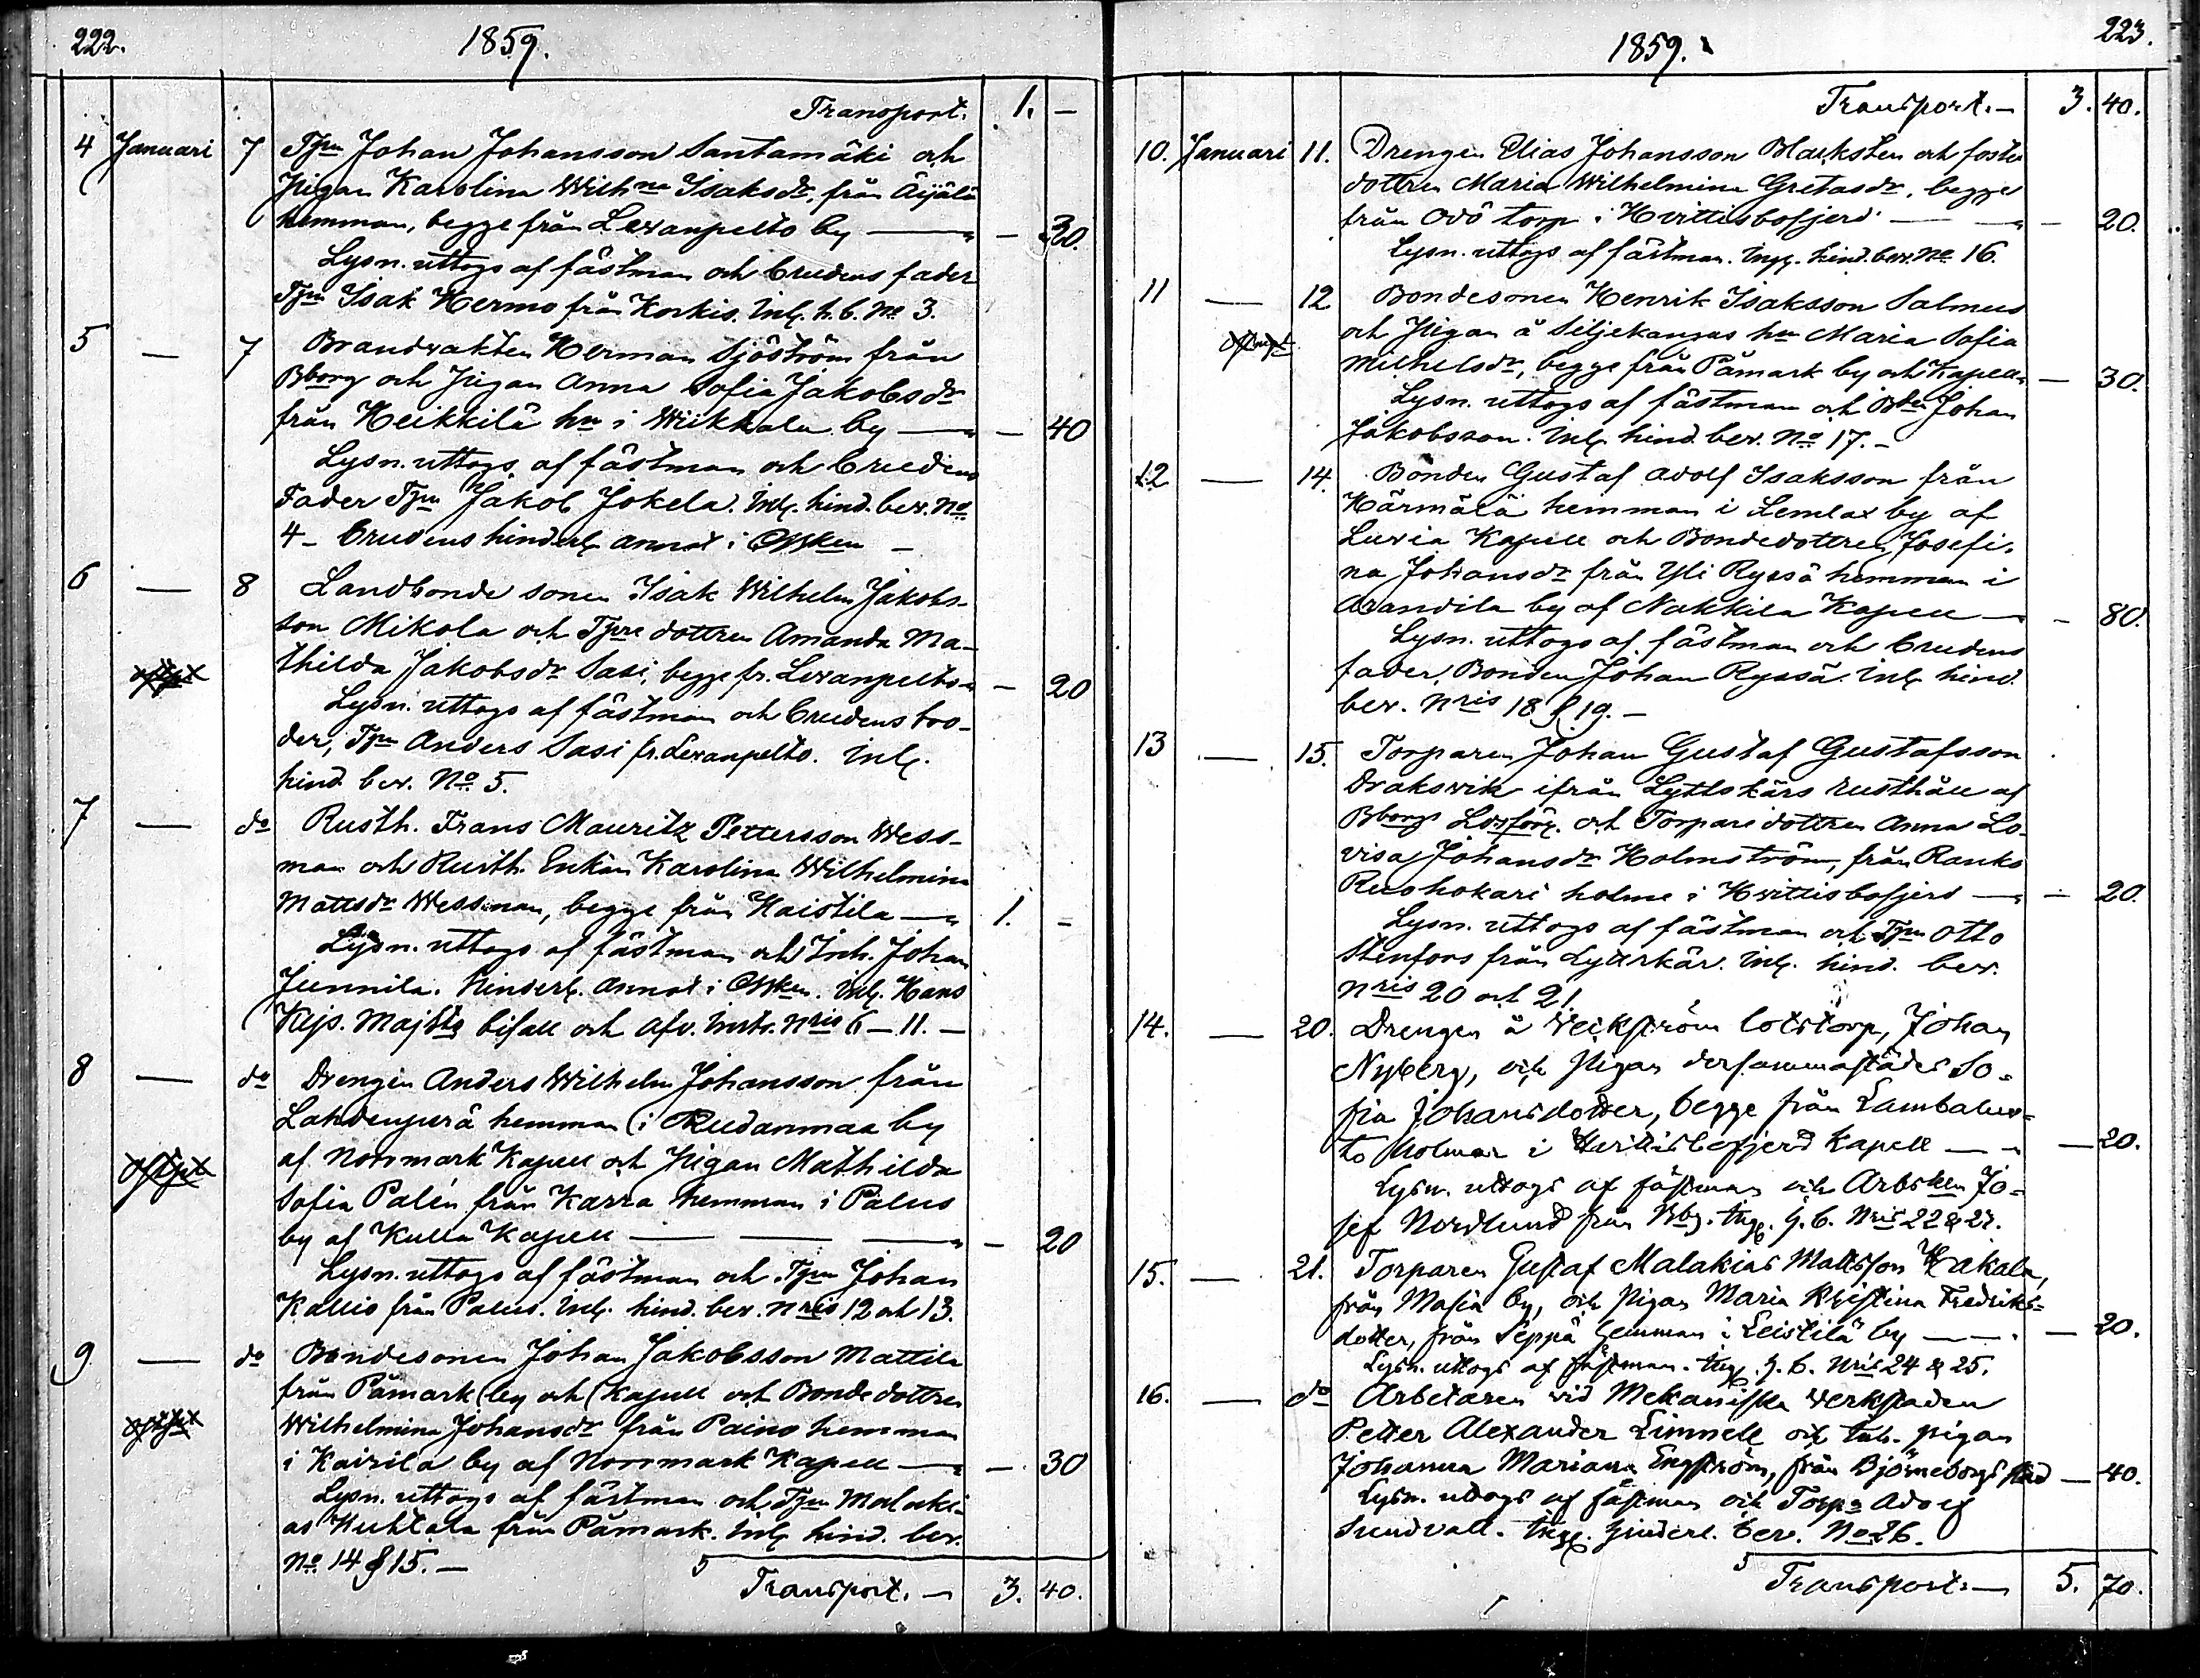 222. 1859.
Transport. 1. —
4 Januari 7 Tpn Johan Johansson Santamäki och
Pigan Karolina Wilhna Isaksdr. från Äijälä
hemman, begge från Levanpelto by — — 30.
Lysn. uttogs af fästman och brudens fader
Tpn Isak Hermo från Korkis. Inl. h. b. No 3.
5 — 7 Brandvakten Herman Sjöström från
Bborg och Pigan Anna Sofia Jakobsdr
från Heikkilä hn i Wiikkala by — — 40
Lysn. uttogs af fästman och brudens
Fader Tpn Jakob Jokela. Inl. hind. bev. No
4 - brudens hinderl. annot i —
6 — 8 Landbonde sonen Isak Wilhelm Jakobs-
son Mikola och Tpre dottren Amanda Ma-
thilda Jakobsdr Sasi, begge fr. Levanpelto — 20
Lysn. uttogs af fästman och brudens bro-
der, Tpn Anders Sasi fr. Levanpelto. Inl.
hind bev. No 5.
7 — do Rusth. Frans Mauritz Pettersson Wess-
man och Rusth. Enkan Karolina Wilhelmina
Mattsdr Wessman, begge från Haistila — 1. —
Lysn. uttogs af fästman och Inh. Johan
Junnila. Hinderl. annot i Inl. Hans
Kejs. Majsts bifall och afv. Nris 6 — 11. —
8 — do Drengen Anders Wilhelm Johansson från
Lahdenperä hemman i Rudanmaa by
af Norrmark Kapell och Pigan Mathilda
Sofia Palén från Karra hemman i Palus
by af Kulla Kapell — — — — 20
Lysn. uttogs af fästman och Tpn Johan
Kallio från Palus. Inl. hind. bev. nris 12 och 13.
9 — do Bondesonen Johan Jakobsson Mattila
från Påmark by och Kapell och Bonde dottren
Wilhelmina Johansdr från Paino hemman
i Kairila by af Norrmark Kapell — — 30
Lysn. uttogs af fästman och Tpn Malaki-
as Huhtala från Påmark. Inl. hind. bev.
No 14 & 15. —
Transport. — 3. 40.
1859. 223.
Transport. — 3. 40.
10. Januari 11. Drengen Elias Johansson Blacksten och foster
dottren Maria Wilhelmina Gretasdr. begge
från Ovö torp i Hvittisbofjerd — — 20.
Lysn. uttogs af fästman. Ingl. hind. bev. No 16.
11 — 12 Bondesonen Henrik Isaksson Salmus
och Pigan å Siljekangas hn Maria Sofia
Mikhelsdr, begge från Påmark by och Kapell — 30.
Lysn. uttogs af fästman och Bden Johan
Jakobsson. Inl. hind. bev. No 17. —
12 — 14. Bonden Gustaf Adolf Isaksson från
Härmälä hemman i Lemlax by af
Luvia Kapell och Bondedottren Josefi-
na Johansdr från Yli Ryssä hemman i
Arandila by af Nakkila Kapell — — 80.
Lysn. uttogs af fästman och brudens
fader, Bonden Johan Ryssä. Inl. hind.
bev. nris 18 & 19. —
13 — 15. Torparen Johan Gustaf Gustafsson
Draksvik ifrån Lyttskärs rusthåll af
Bborgs Ldsförs. och Torpare dottren Anna Lo-
visa Johansdr Holmström, från Ranks
Ruohokari holme i Hvittisbofjerd — — 20.
Lysn. uttogs af fästman och Tpn Otto
Stenfors från Lyttskär. Inl. hind. bev.
nris 20 och 21.
14. — 20. Drengen å Veikström lotstorp, Johan
Nyberg, och Pigan dersammastädes So-
fia Johansdotter, begge från Lambaluo-
to holmar i Hvittisbofjerd Kapell — — 20.
Lysn. uttogs af fästman och Arbskn Jo-
sef Nordlund från Bbg. Ing. h. b. Nris 22 & 23.
15. — 21. Torparen Gustaf Malakias Mattsson Hakala,
från Masia by, och Pigan Maria Kristina Fredriks-
dotter, från Seppä hemman i Leistilä by — — 20.
Lysn. uttogs af fästman. Ing. h. b. Nris 24 & 25.
16. — do Arbetaren vid Mekaniska verkstaden
Petter Alexander Limnell och pigan
Johanna Mariana Engström, från Björneborgs stad — 40.
Lysn. uttogs af fästman och Torpn Adolf
Sundvall. Ing. hinderl. bev. No 26.
Transport. — 5. 70.